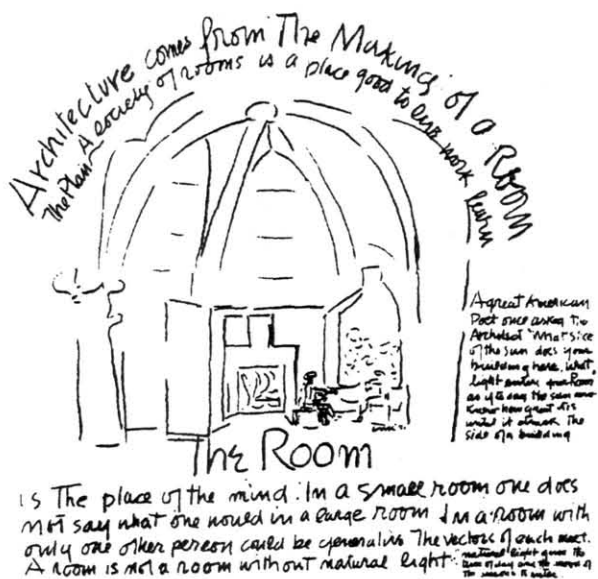 Architecture comes from The Making of a Room
The Plan A society of rooms is a place good to live work learn
A great American
Poet once asked the
Architect "What slice
of the sun does your
building have. What
light enters your Room
as if to say the sun never
knew how great it is
until it struck the
side of a building
The Room
is The place of the mind. In a small room one does
not say what one would in a large room In a room with
only one other person could be generative The vectors of each meet.
A room is not a room without natural light
natural light gives the
time of day and the mood of
the seasons to enter